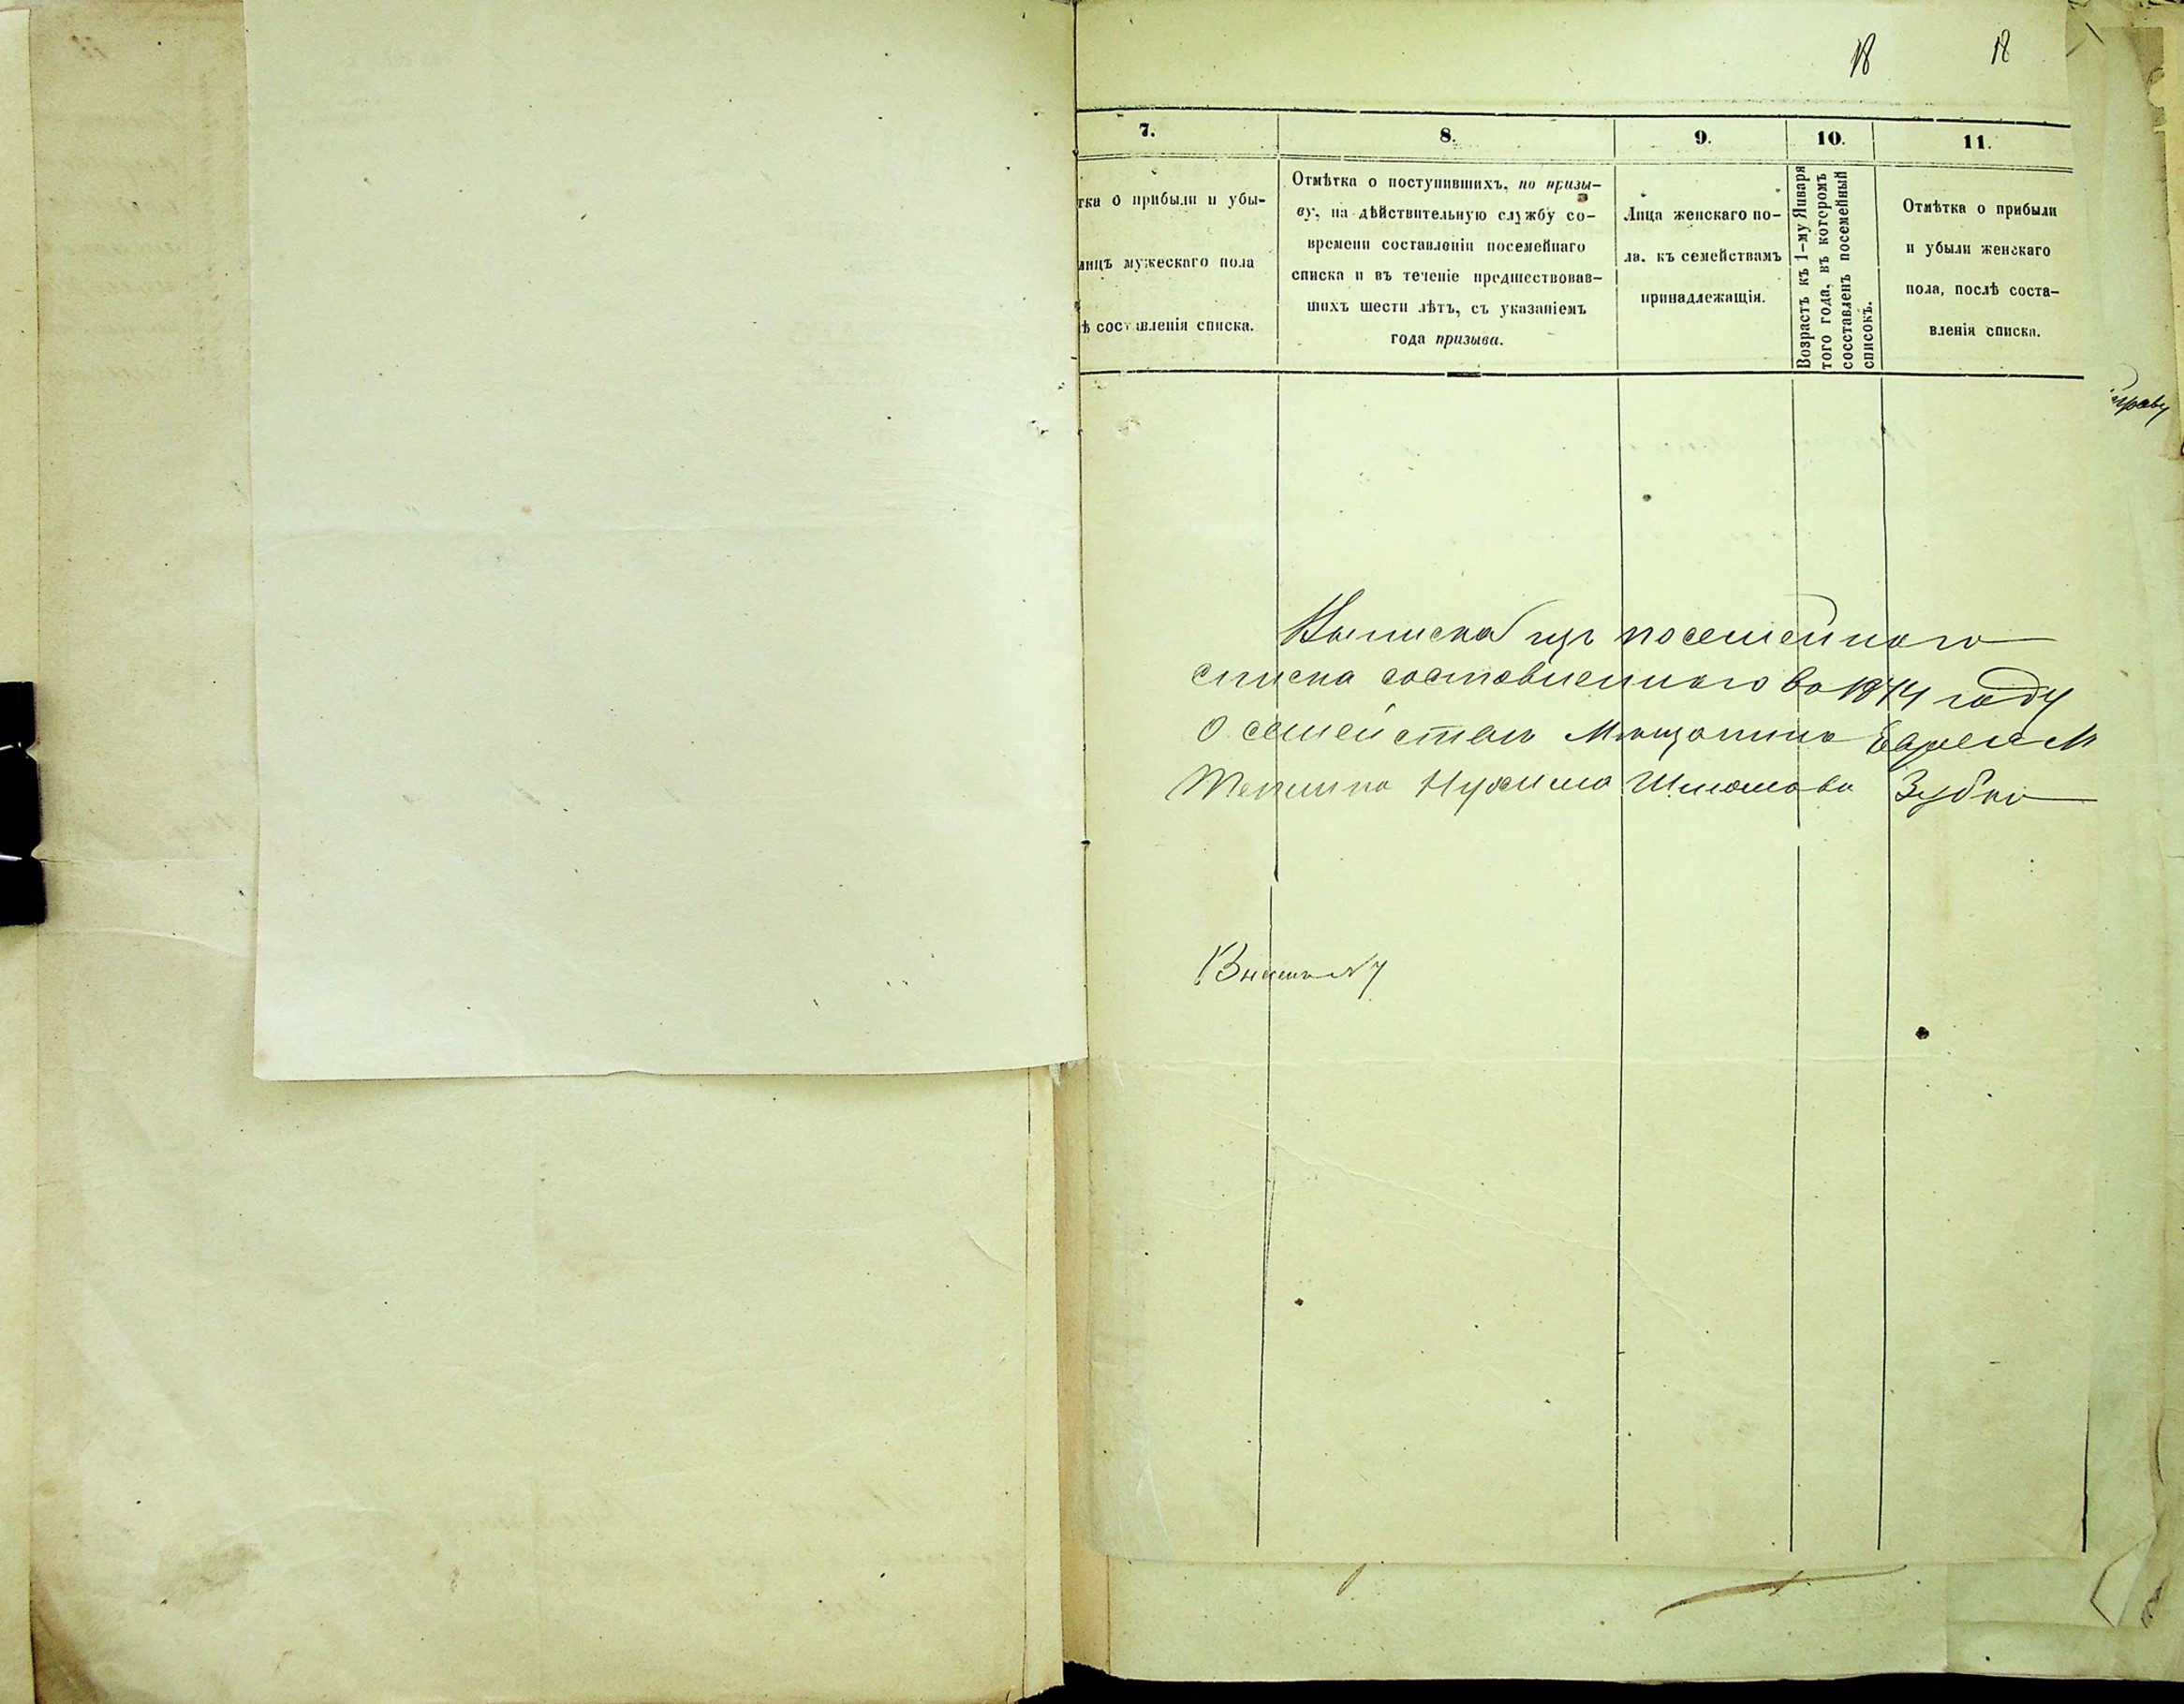 18 18
7. 8. 9. 10. 11.
тка о прибыли и убы-
лицъ мужескаго пола
ѣ составленія списка.
Отмѣтка о поступившихъ, по призы-
ву, на дѣйствительную службу со-
времени составленіи посемейнаго
списка и въ теченіе предшествовав-
шихъ шести лѣтъ, съ указаніемъ
года призыва.
Лица женскаго по-
ла, къ семействамъ
принадлежащія.
Возрастъ къ 1-му Января
того года, въ которомъ
сосставленъ посемейный
списокъ.
Отмѣтка о прибыли
и убыли женскаго
пола, послѣ соста-
вленія списка.
Выписка изъ посемейнаго
списка составленнаго во 1874 году
О семействѣ Мѣщанина Еврея М
Нухима Шлиомова Зубко